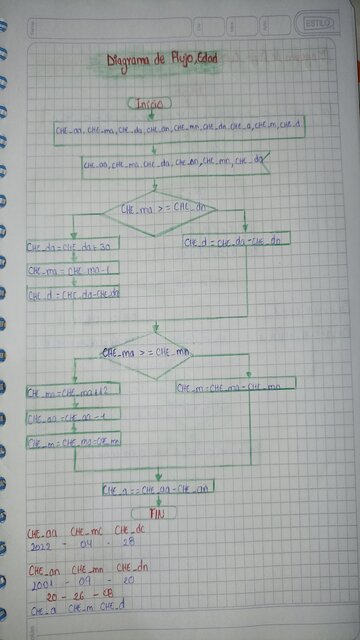 ESTILO
Diagrama de Flujo, Edad
Inicio
CHE_aa, CHE_ma, CHE_da, CHE_an, CHE_mn, CHE_dn, CHE_a, CHE_m, CHE_d
CHE_aa, CHE_ma, CHE_da, CHE_an, CHE_mn, CHE_dn
CHE_ma >= CHE_dn
CHE_da = CHE_da + 30
CHE_d = CHE_da - CHE_dn
CHE_ma = CHE_ma - 1
CHE_d = CHE_da - CHE_dn
CHE_ma >= CHE_mn
CHE_ma = CHE_ma + 12
CHE_m = CHE_ma - CHE_mn
CHE_aa = CHE_aa - 1
CHE_m = CHE_ma - CHE_mn
CHE_a == CHE_aa - CHE_an
FIN
CHE_aa CHE_mc CHE_dc
2022 - 04 - 28
CHE_an CHE_mn CHE_dn
2001 - 09 - 20
20 - 26 - 08
CHE_a CHE_m CHE_d